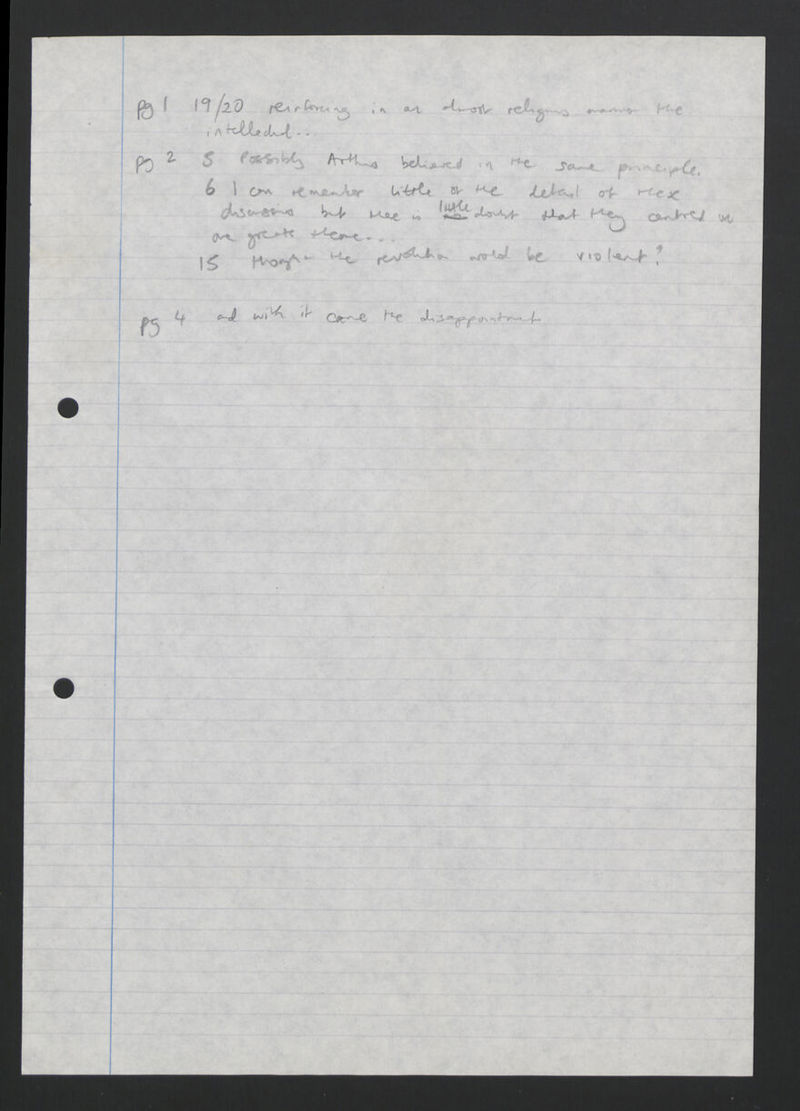 pg 1 19/20 reinforcing in an almost religious manner the
intellectual...
pg 2 5 Possibly Arthur believed in the same principle.
6 I can remember little of the detail of these
discussions but there is little doubt that they centred on
one great theme...
15 thought the revolution would be violent?
pg 4 and with it came the disappointment